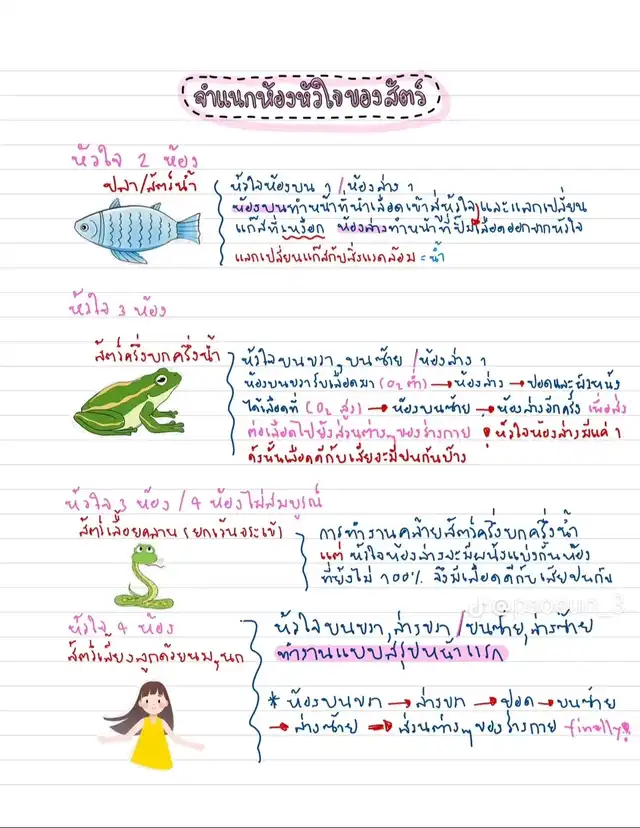 จำแนกห้องหัวใจของสัตว์
หัวใจ 2 ห้อง
ปลา/สัตว์น้ำ
หัวใจห้องบน 1 /ห้องล่าง 1
ห้องบนทำหน้าที่นำเลือดเข้าสู่หัวใจ และแลกเปลี่ยน
แก๊สที่เหงือก ห้องล่างทำหน้าที่ปั๊มเลือดออกจากหัวใจ
แลกเปลี่ยนแก๊สกับสิ่งแวดล้อม = น้ำ
หัวใจ 3 ห้อง
สัตว์ครึ่งบกครึ่งน้ำ
หัวใจบนขวา, บนซ้าย /ห้องล่าง 1
ห้องบนขวารับเลือดมา (O₂ ต่ำ) → ห้องล่าง → ปอดและผิวหนัง
ได้เลือดที่ (O₂ สูง) → ห้องบนซ้าย → ห้องล่างอีกครั้ง เพื่อส่ง
ต่อเลือดไปยังส่วนต่างๆของร่างกาย หัวใจห้องล่างมีแค่ 1
ดังนั้นเลือดดีกับเสียจะมีปนกันบ้าง
หัวใจ 3 ห้อง /4 ห้องไม่สมบูรณ์
สัตว์เลื้อยคลาน (ยกเว้นจระเข้)
การทำงานคล้ายสัตว์ครึ่งบกครึ่งน้ำ
แต่ หัวใจห้องล่างจะมีผนังแบ่งกั้นห้อง
ที่ยังไม่ 100% จึงมีเลือดดีกับเสียปนกัน
@psooun_3
หัวใจ 4 ห้อง
สัตว์เลี้ยงลูกด้วยนม, นก
หัวใจบนขวา, ล่างขวา /บนซ้าย, ล่างซ้าย
ทำงานแบบสรุปหน้าแรก
* ห้องบนขวา → ล่างขวา → ปอด → บนซ้าย
→ ล่างซ้าย → ส่วนต่างๆของร่างกาย finally!